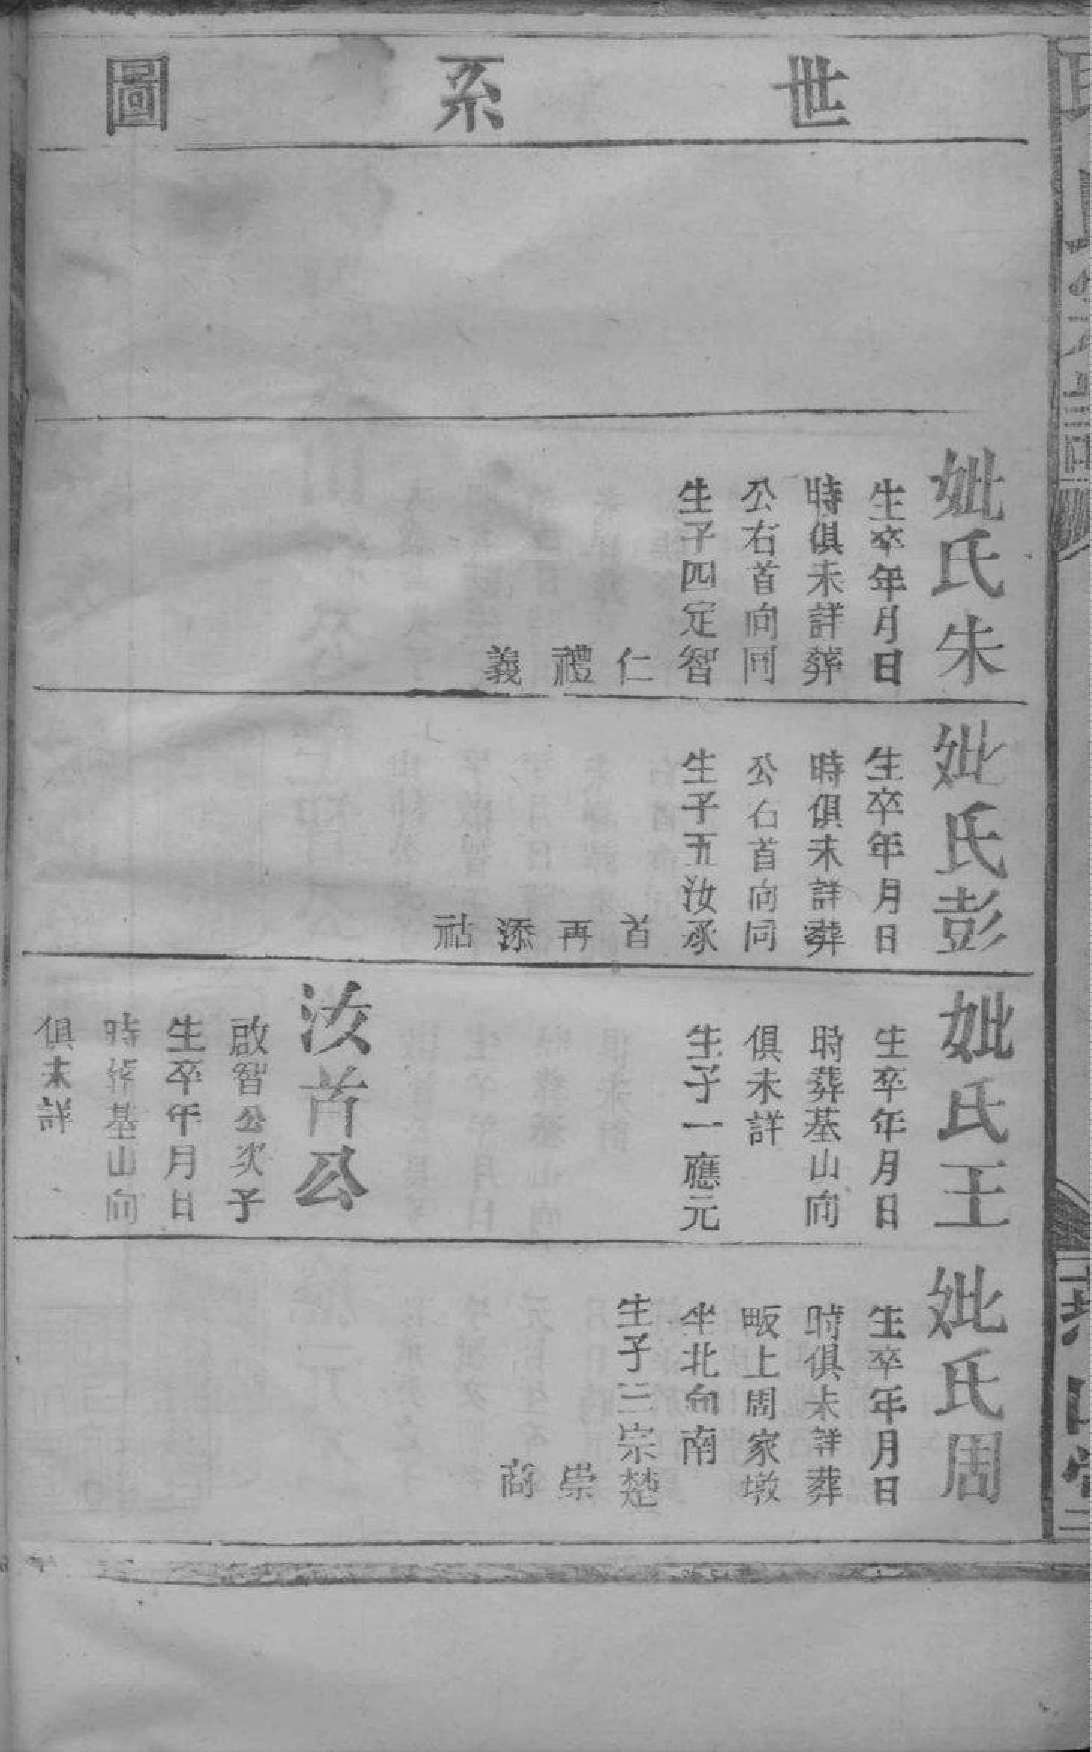 世系圖
妣氏朱
生卒年月日
時俱未詳葬
公右首向同
生子四定智
仁
禮
義
妣氏彭
生卒年月日
時俱未詳葬
公右首向同
生子五汝承
首
再
添
祜
妣氏王
生卒年月日
時葬基山向
俱未詳
生子一應元
汝首公
啟智公次子
生卒年月日
時葬基山向
俱未詳
妣氏周
生卒年月日
時俱未詳葬
畈上周家墩
坐北向南
生子三宗楚
崇
商